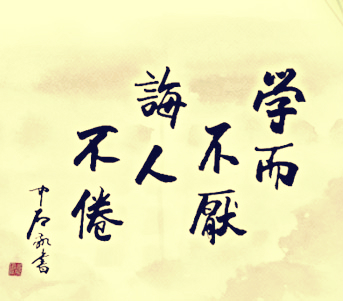 学而
不厭
誨人
不倦
中石書